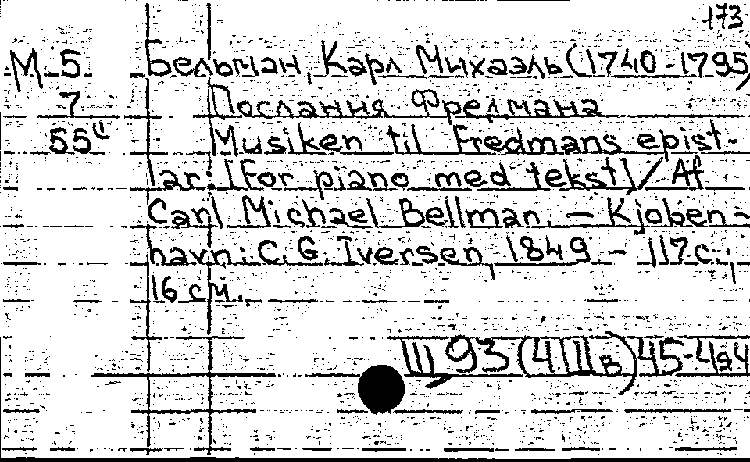 173
М 5 Бельман, Карл Михаэль (1740-1795)
7 Послания Фредмана
55 Musiken til Fredmans epist-
lar: [For piano med tekst] / Af
Carl Michael Bellman. – Kjoben-
havn: C. G. Iversen, 1849 – 117 с.,
16 см.
93 (4 Шв) 45-4